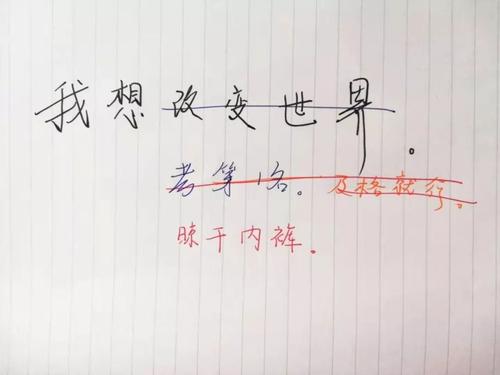 我想改变世界.
考第1名。及格就行。
晾干内裤.